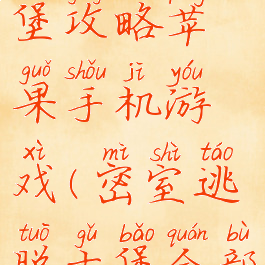 堡攻略苹
guǒ shǒu jī yóu
果手机游
xì mì shì táo
戏(密室逃
tuō gǔ bǎo quán bù
脱古堡全部